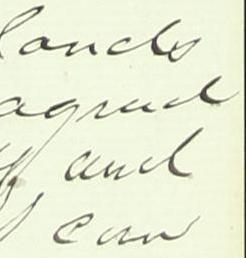 lands
agreed
and
can